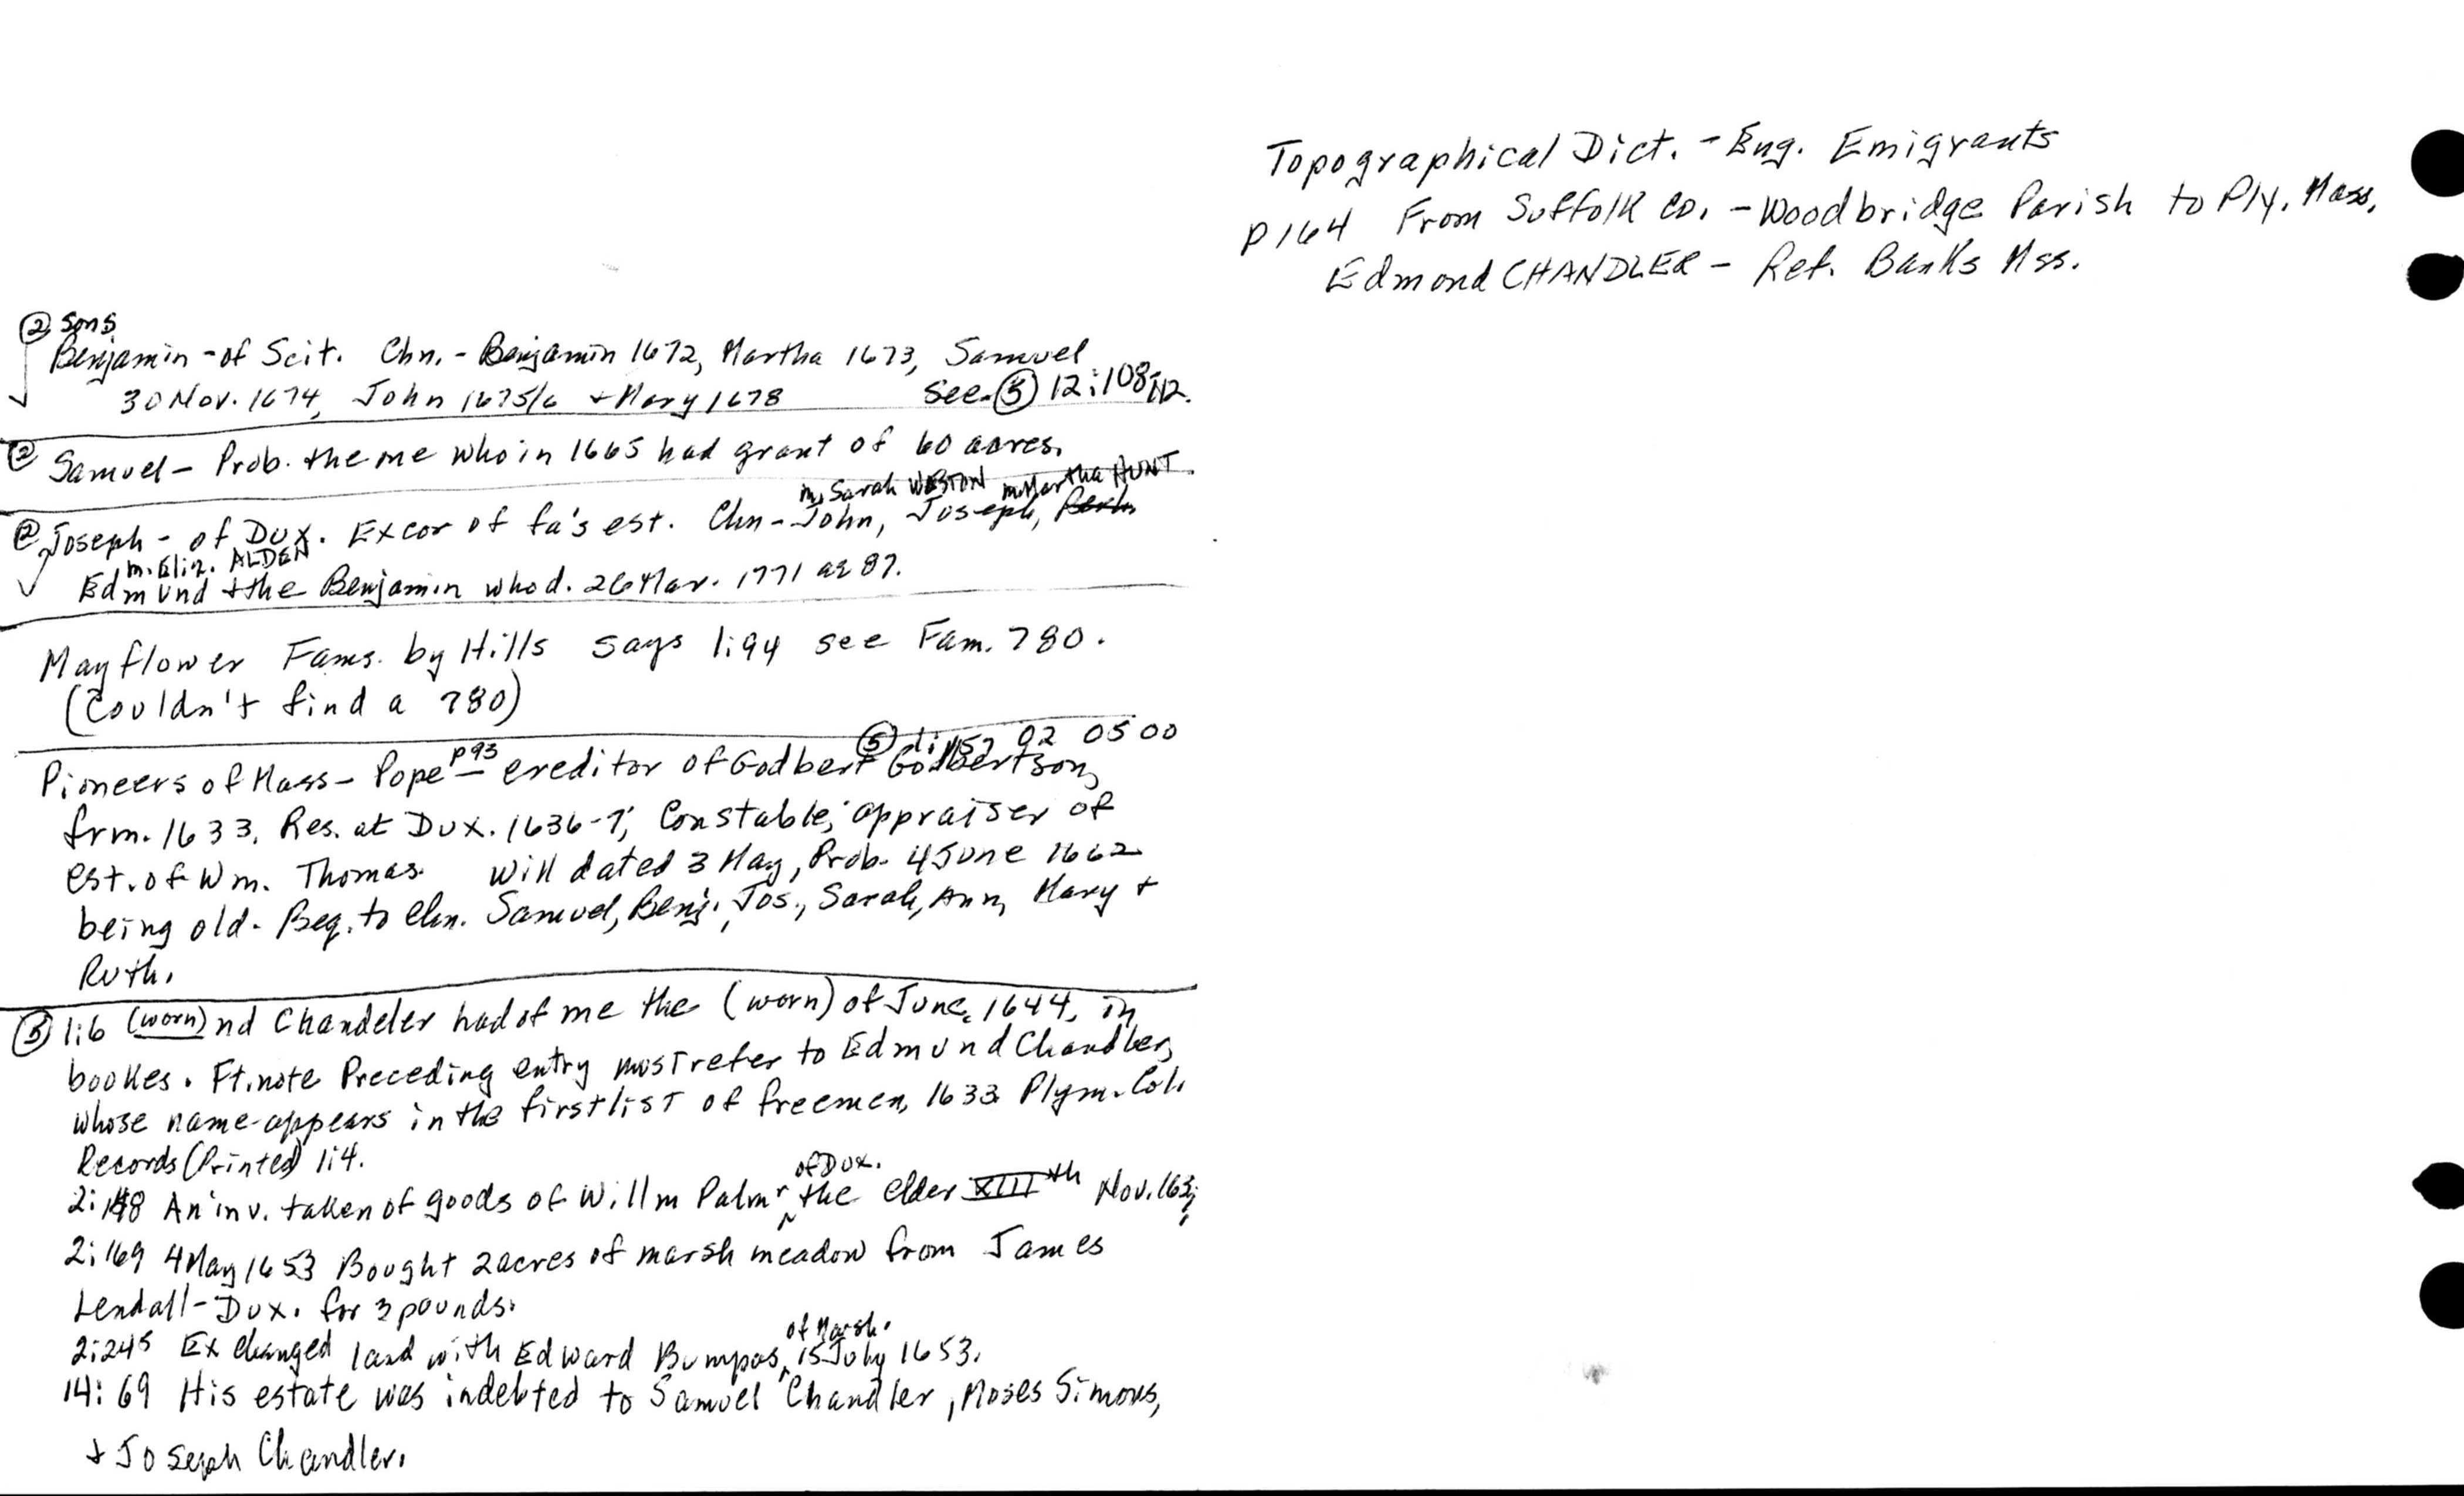 ② sons
Benjamin - of Scit. Chn. - Benjamin 1672, Martha 1673, Samuel
30 Nov. 1674, John 1675/6 + Mary 1678 See ⑤ 12:108
② Samuel - Prob. the one who in 1665 had grant of 60 acres.
m. Sarah WESTON m. Martha HUNT
② Joseph - of Dux. Excor of fa's est. Chn - John, Joseph,
m. Eliz. ALDEN
Edmund + the Benjamin who d. 26 Mar. 1771 ae 87.
Mayflower Fams. by Hills says 1:94 see Fam. 780.
(Couldn't find a 780)
⑤ 02 0500
Pioneers of Mass - Pope p93 - creditor of Godbert Godbertson,
frm. 1633. Res. at Dux. 1636-7; Constable; appraiser of
est. of Wm. Thomas. Will dated 3 May, Prob. 4 June 1662
being old. Beq. to chn. Samuel, Benj., Jos., Sarah, Ann, Mary +
Ruth.
⑤ 1:6 (worn) nd Chandeler had of me the (worn) of June, 1644, in
bookes. Ft. note Preceding entry must refer to Edmund Chandler,
whose name appears in the first list of freemen, 1633 Plym. Col.
Records (Printed) 1:4.
of Dux.
2:148 An inv. taken of goods of Willm Palmr the elder XIIIth Nov. 163
2:169 4 May 1653 Bought 2 acres of marsh meadow from James
Lendall - Dux. for 3 pounds.
of Marsh.
2:245 Exchanged land with Edward Bumpas, 15 July 1653.
14:69 His estate was indebted to Samuel Chandler, Moses Simons,
+ Joseph Chandler.
Topographical Dict. - Eng. Emigrants
p164 From Suffolk Co. - Woodbridge Parish to Ply. Mass.
Edmond CHANDLER - Ref. Banks Mss.